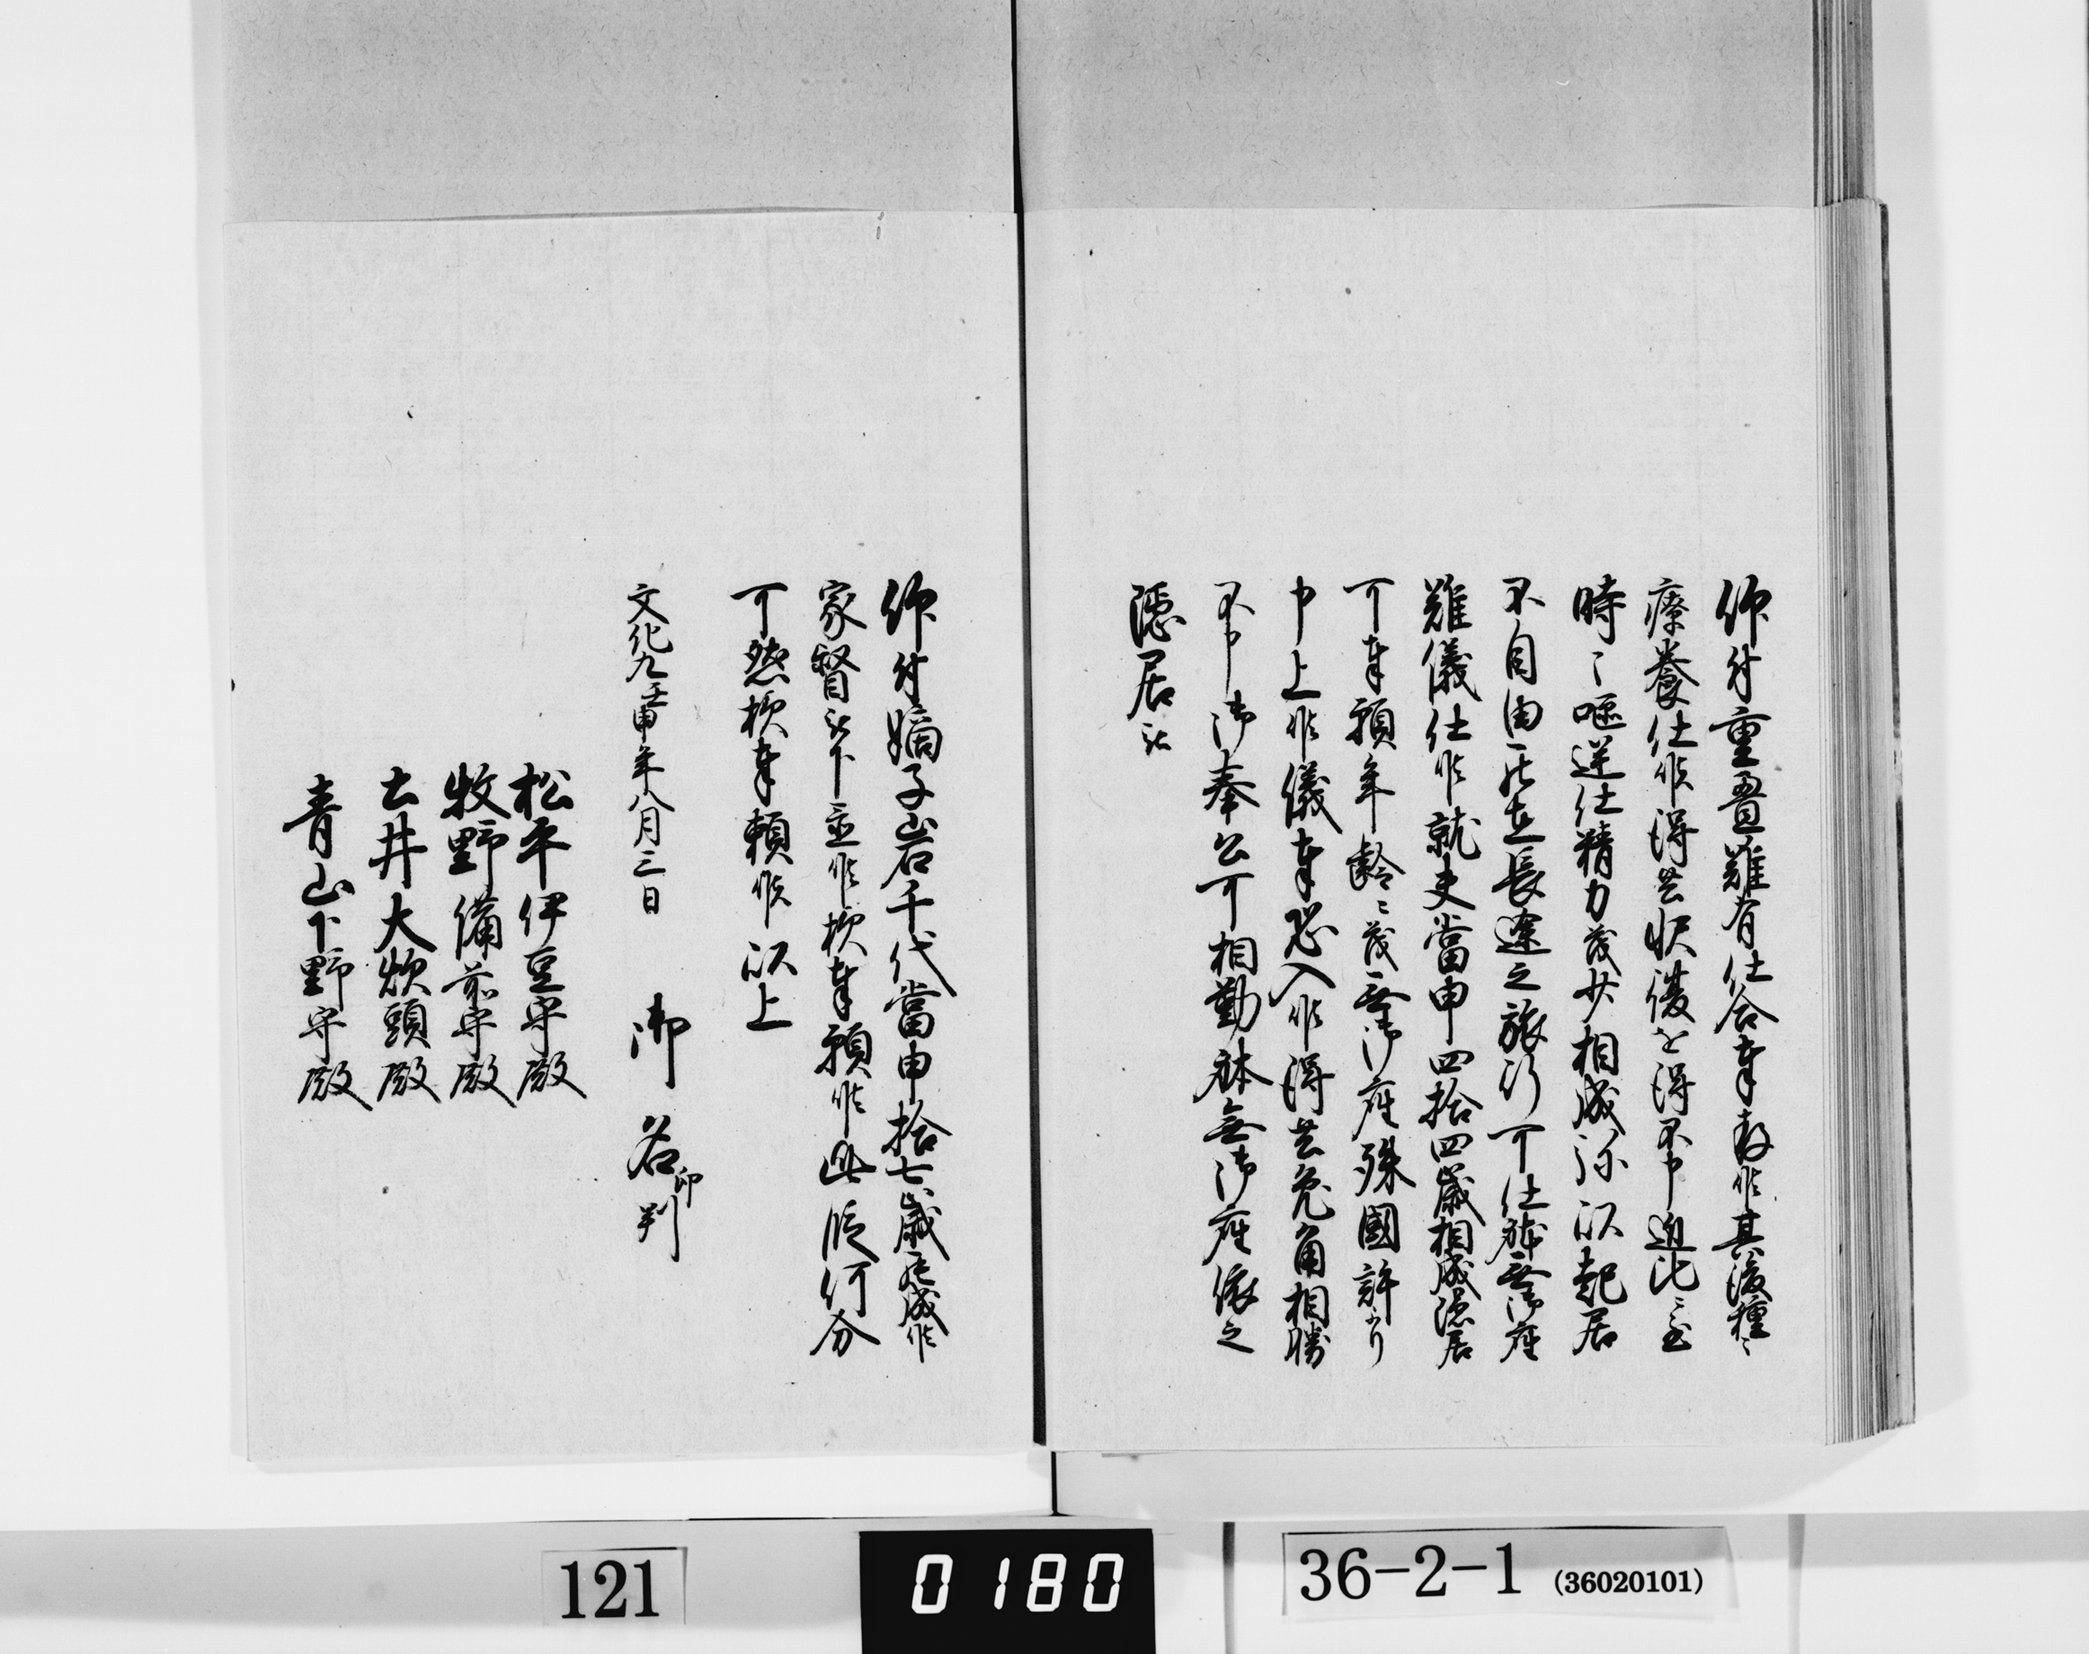 仰付重畳難有仕合奉存候其後種々
療養仕候得共聢快を得不申近比ニ至
時々嘔逆仕精力茂薄相成弥以起居
不自由罷在長途之旅行可仕躰無御座
難儀仕候就夫當申四拾四歳相成隠居
可奉願年齢ニ茂無御座殊國許ゟ
申上候儀奉恐入候得共兎角相勝
不申御奉公可相勤躰無御座依之
隠居被
仰付嫡子岩千代當申拾七歳罷成候
家督被下置候様奉願候此段何分
可然様奉頼候以上
文化九壬申年八月三日　御名印判
松平伊豆守殿
牧野備前守殿
土井大炊頭殿
青山下野守殿
121
0180
36-2-1 (36020101)